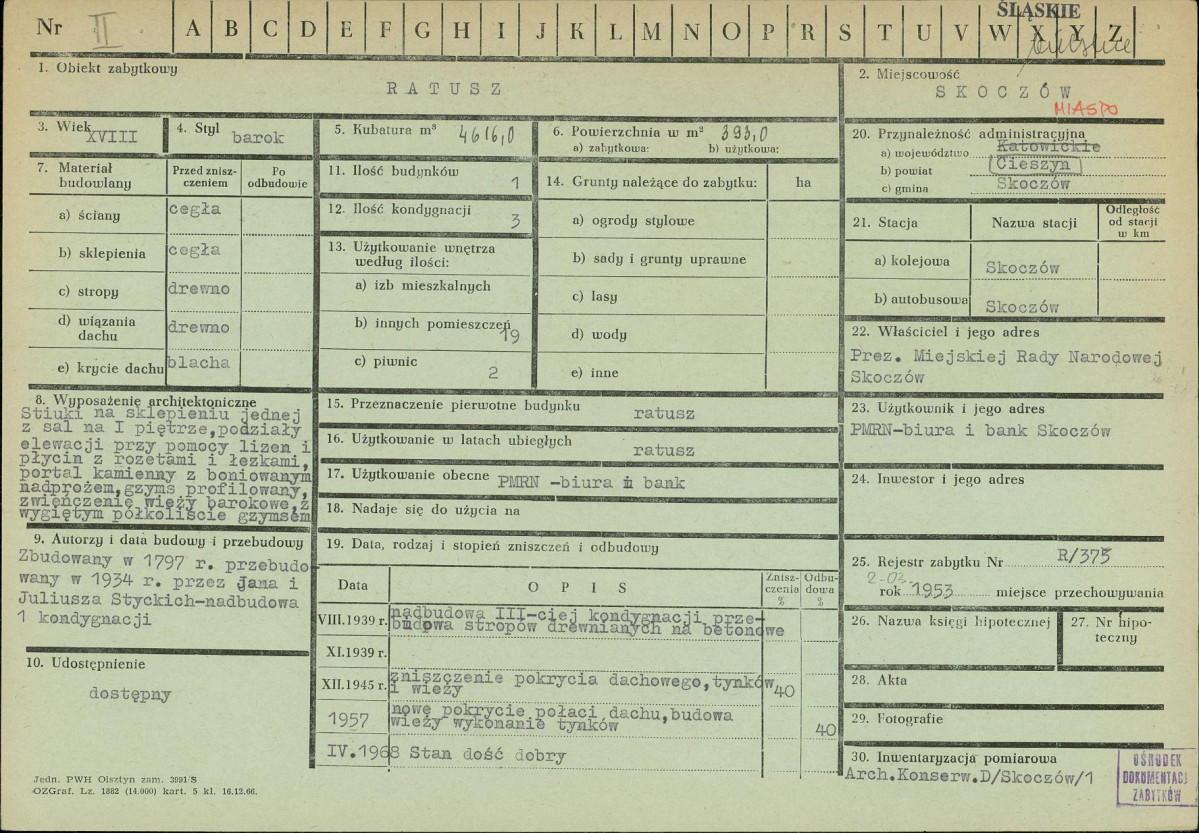 Nr II A B C D E F G H I J K L M N O P R S T U V W X Y Z
ŚLĄSKIE
1. Obiekt zabytkowy
RATUSZ
2. Miejscowość
SKOCZÓW
MIASTO
3. Wiek XVIII
4. Styl barok
5. Kubatura m³ 4616,0
6. Powierzchnia w m² 393,0
a) zabytkowa: b) użytkowa:
7. Materiał budowlany
Przed zniszczeniem
Po odbudowie
a) ściany cegła
b) sklepienia cegła
c) stropy drewno
d) wiązania dachu drewno
e) krycie dachu blacha
8. Wyposażenie architektoniczne
Stiuki na sklepieniu jednej
z sal na I piętrze,podziały
elewacji przy pomocy lizen i
płycin z rozetami i łezkami,
portal kamienny z boniowanym
nadprożem,gzyms profilowany,
zwieńczenie wieży barokowe,z
wygiętym półkoliście gzymsem
9. Autorzy i data budowy i przebudowy
Zbudowany w 1797 r. przebudo
wany w 1934 r. przez Jana i
Juliusza Styckich-nadbudowa
1 kondygnacji
10. Udostępnienie
dostępny
11. Ilość budynków 1
12. Ilość kondygnacji 3
13. Użytkowanie wnętrza
według ilości:
a) izb mieszkalnych
b) innych pomieszczeń 19
c) piwnic 2
14. Grunty należące do zabytku: ha
a) ogrody stylowe
b) sady i grunty uprawne
c) lasy
d) wody
e) inne
15. Przeznaczenie pierwotne budynku ratusz
16. Użytkowanie w latach ubiegłych ratusz
17. Użytkowanie obecne PMRN -biura i bank
18. Nadaje się do użycia na
19. Data, rodzaj i stopień zniszczeń i odbudowy
Data
OPIS
Zniszczenia %
Odbudowa %
VIII.1939 r. nadbudowa III-ciej kondygnacji prze-
budowa stropów drewnianych na betonowe
XI.1939 r.
XII.1945 r. zniszczenie pokrycia dachowego,tynków
i wieży 40
1957 nowe pokrycie połaci dachu,budowa
wieży wykonanie tynków 40
IV.1968 Stan dość dobry
20. Przynależność administracyjna
a) województwo Katowickie
b) powiat Cieszyn
c) gmina Skoczów
21. Stacja
Nazwa stacji
Odległość od stacji w km
a) kolejowa Skoczów
b) autobusowa Skoczów
22. Właściciel i jego adres
Prez. Miejskiej Rady Narodowej
Skoczów
23. Użytkownik i jego adres
PMRN-biura i bank Skoczów
24. Inwestor i jego adres
25. Rejestr zabytku Nr R/375
2-03
rok 1953 miejsce przechowywania
26. Nazwa księgi hipotecznej
27. Nr hipoteczny
28. Akta
29. Fotografie
30. Inwentaryzacja pomiarowa
Arch.Konserw.D/Skoczów/1
OŚRODEK
DOKUMENTACJI
ZABYTKÓW
Jedn. PWH Olsztyn zam. 3991/S
OZGraf. Lz. 1882 (14.000) kart. 5 kl. 16.12.66.